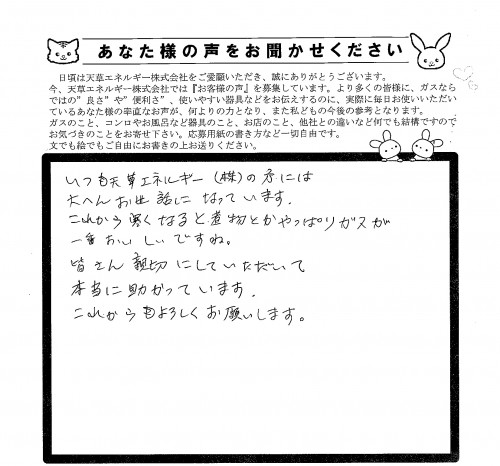 あなた様の声をお聞かせください
日頃は天草エネルギー株式会社をご愛顧いただき、誠にありがとうございます。
今、天草エネルギー株式会社では『お客様の声』を募集しています。より多くの皆様に、ガスなら
ではの”良さ”や”便利さ”、使いやすい器具などをお伝えするのに、実際に毎日お使いいただい
ているあなた様の率直なお声が、何よりの力となり、また私どもの今後の参考となります。
ガスのこと、コンロやお風呂など器具のこと、お店のこと、他社との違いなど何でも結構ですので
お気づきのことをお寄せ下さい。応募用紙の書き方など一切自由です。
文でも絵でもご自由にお書きの上お送りください。
いつも天草エネルギー(株)の方には
大へんお世話になっています.
これから寒くなると煮物とかやっぱりガスが
一番おいしいですね。
皆さん親切にしていただいて
本当に助かっています.
これからもよろしくお願いします。